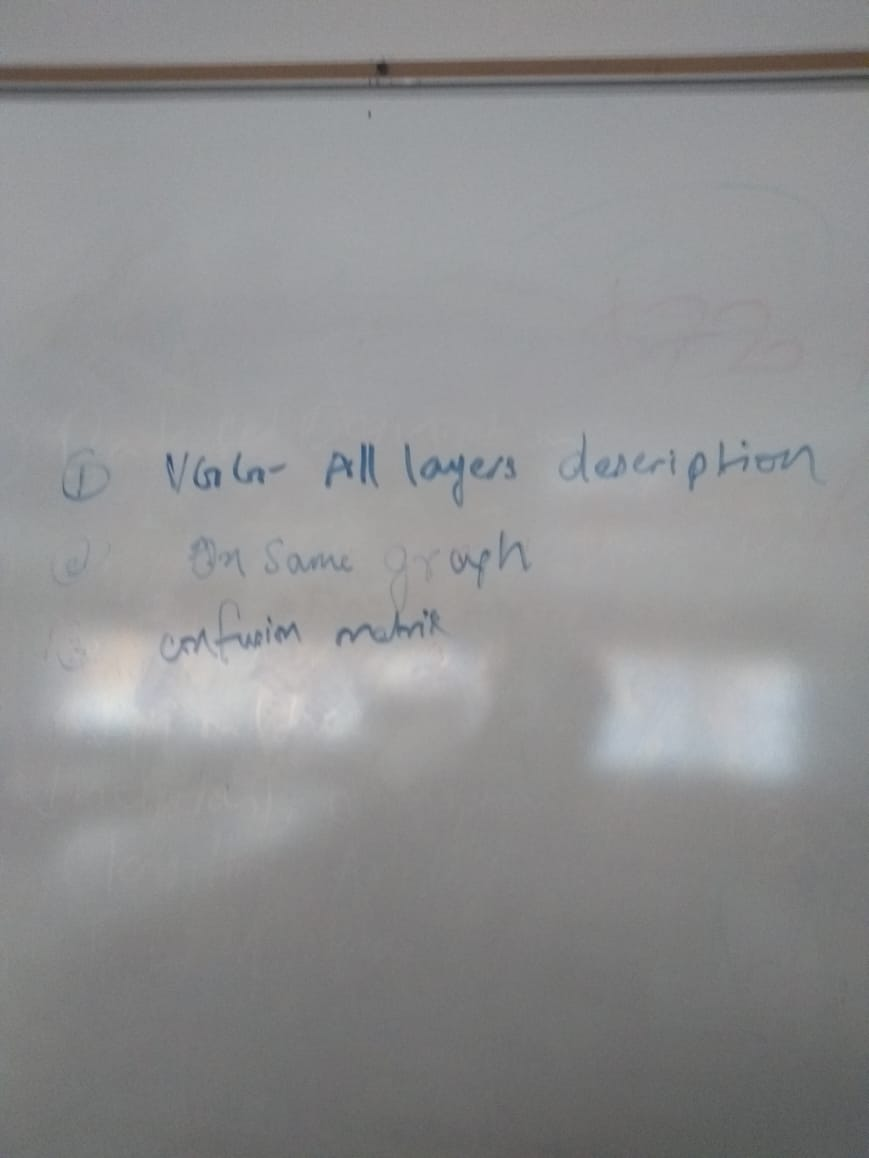 ① VGG- All layers description
② On Same graph
③ confusion matrix